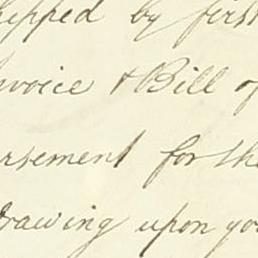 hipped by first
nvoice & Bill of
rsement for the
rawing upon you